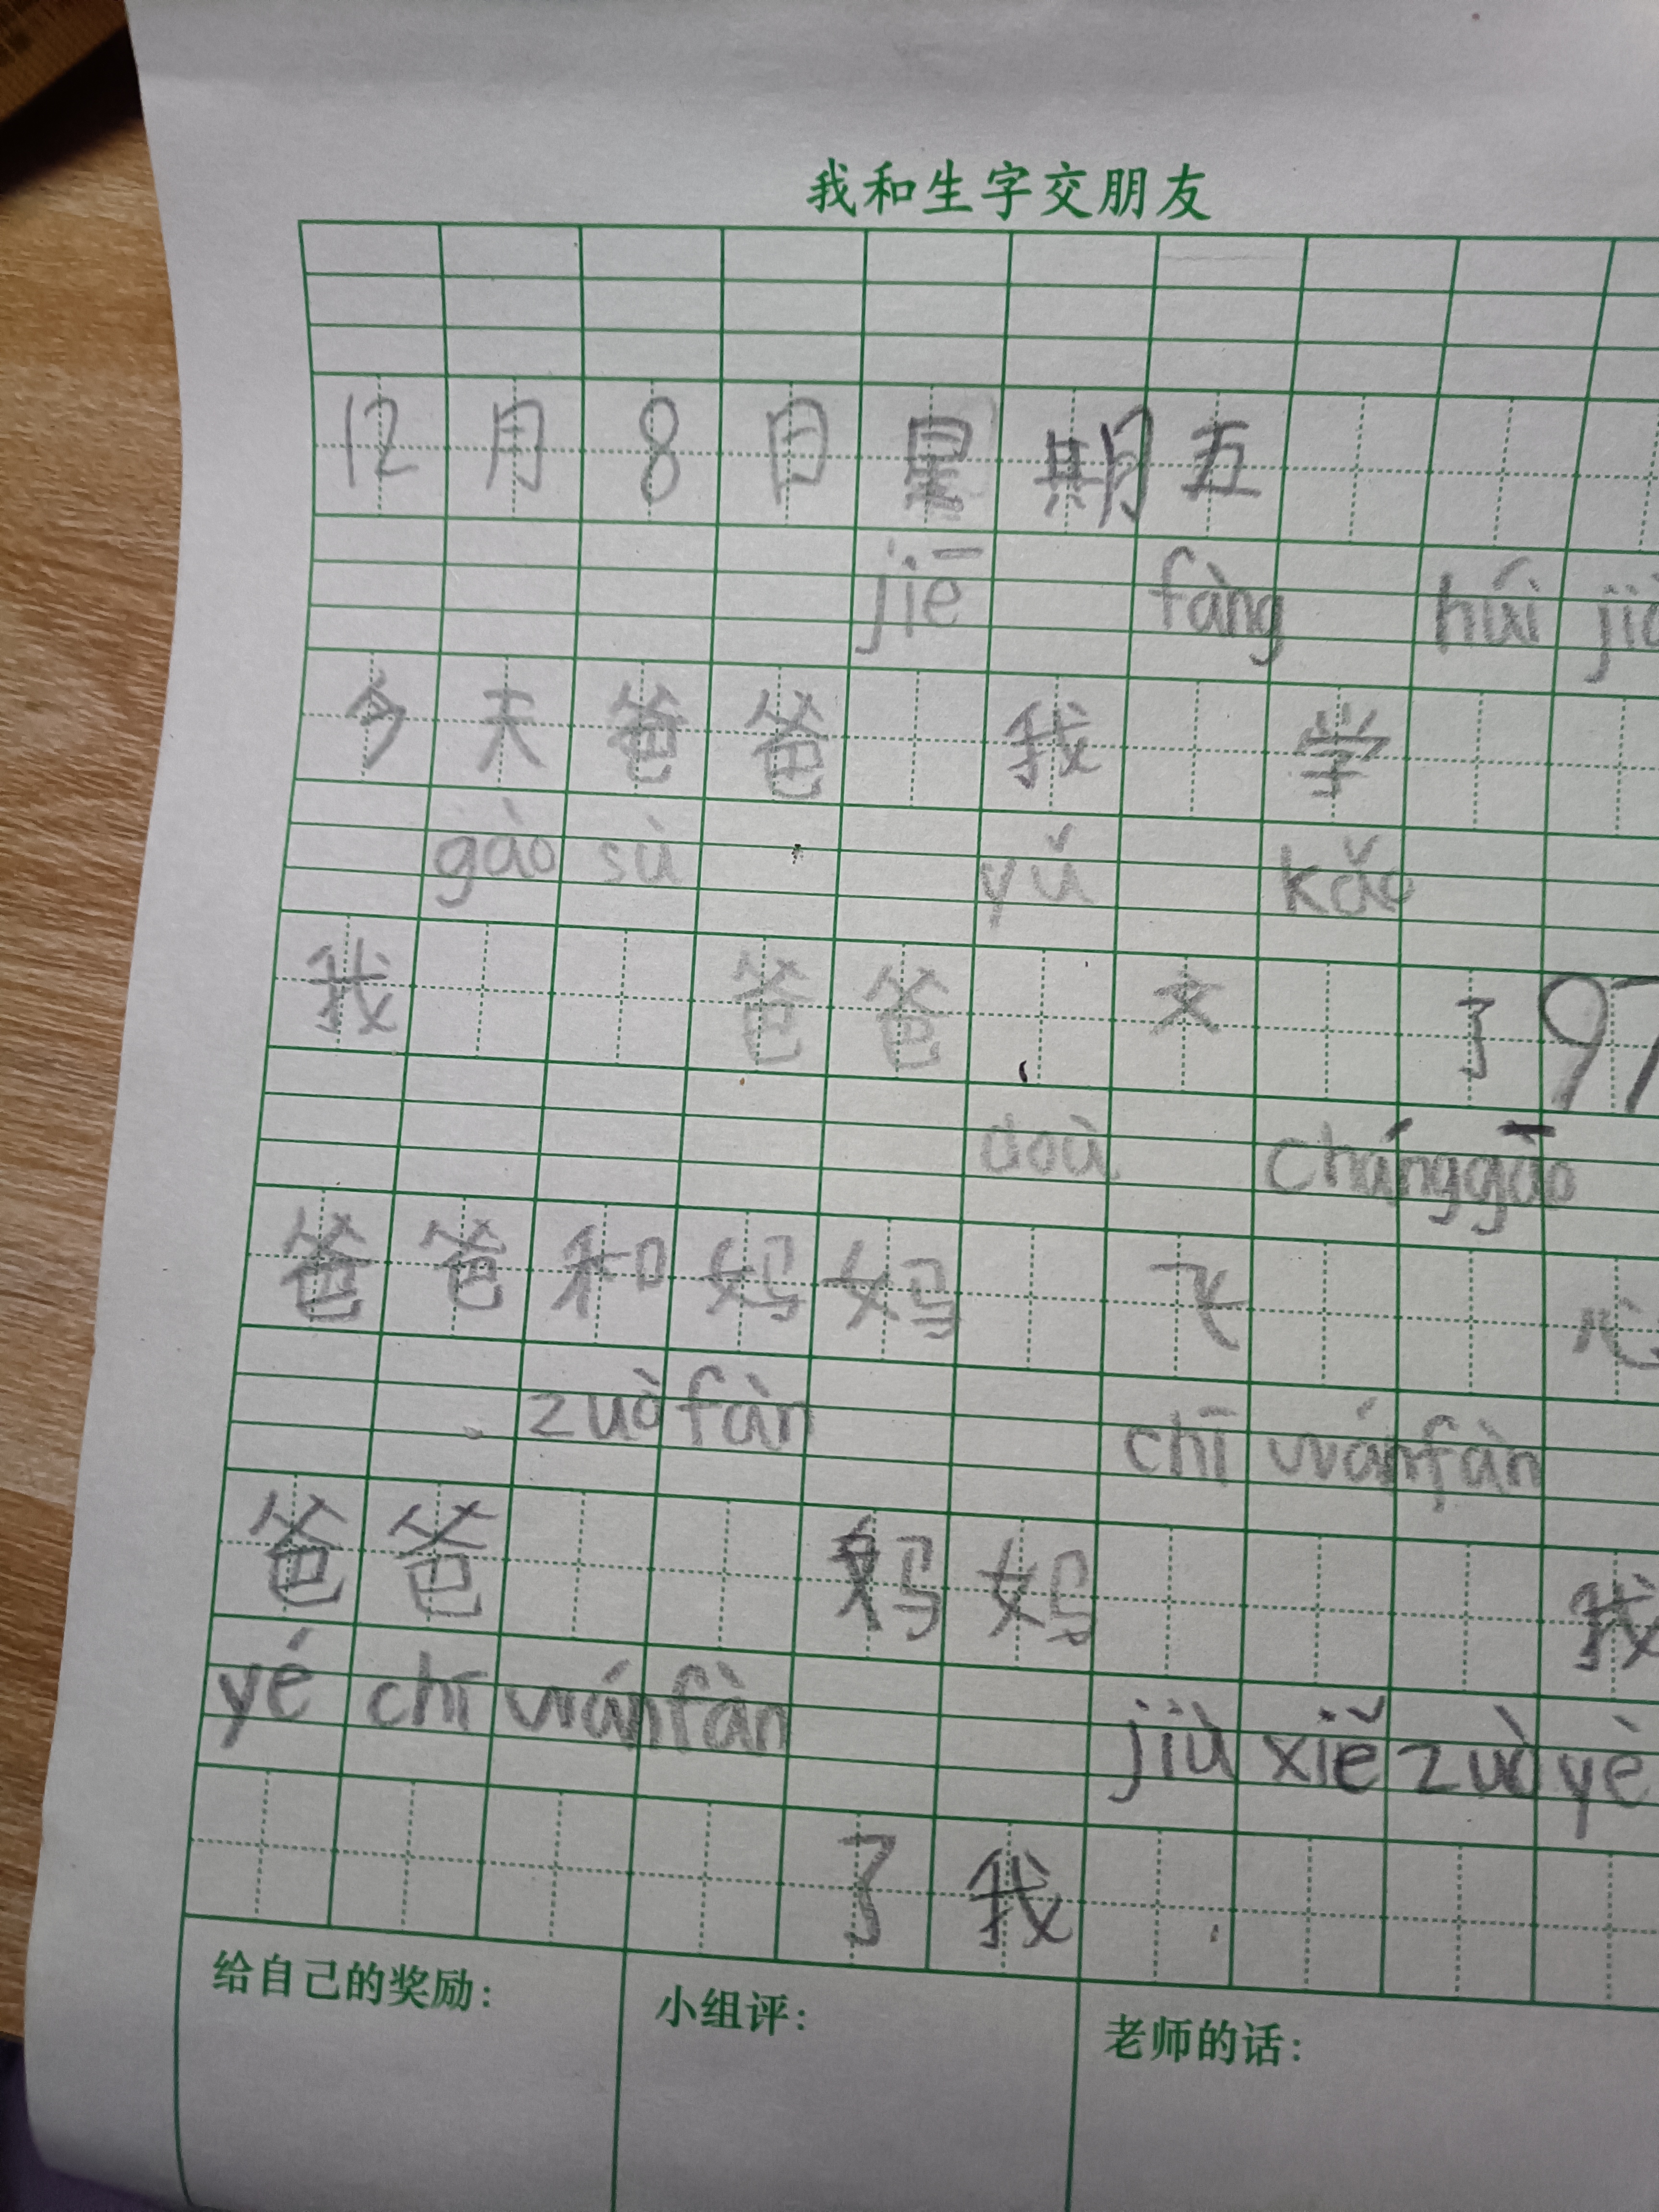 我和生字交朋友
12月8日星期五
jiē fàng húi
今天爸爸 我 学
gào sù yǔ kǎo
我 爸爸 文 了97
doù cháng gāo
爸爸和妈妈 飞 心
zuò fàn chī wán fàn
爸爸 妈妈 我
yé chī wán fàn jiù xiě zuò yè
了我
给自己的奖励:
小组评:
老师的话: